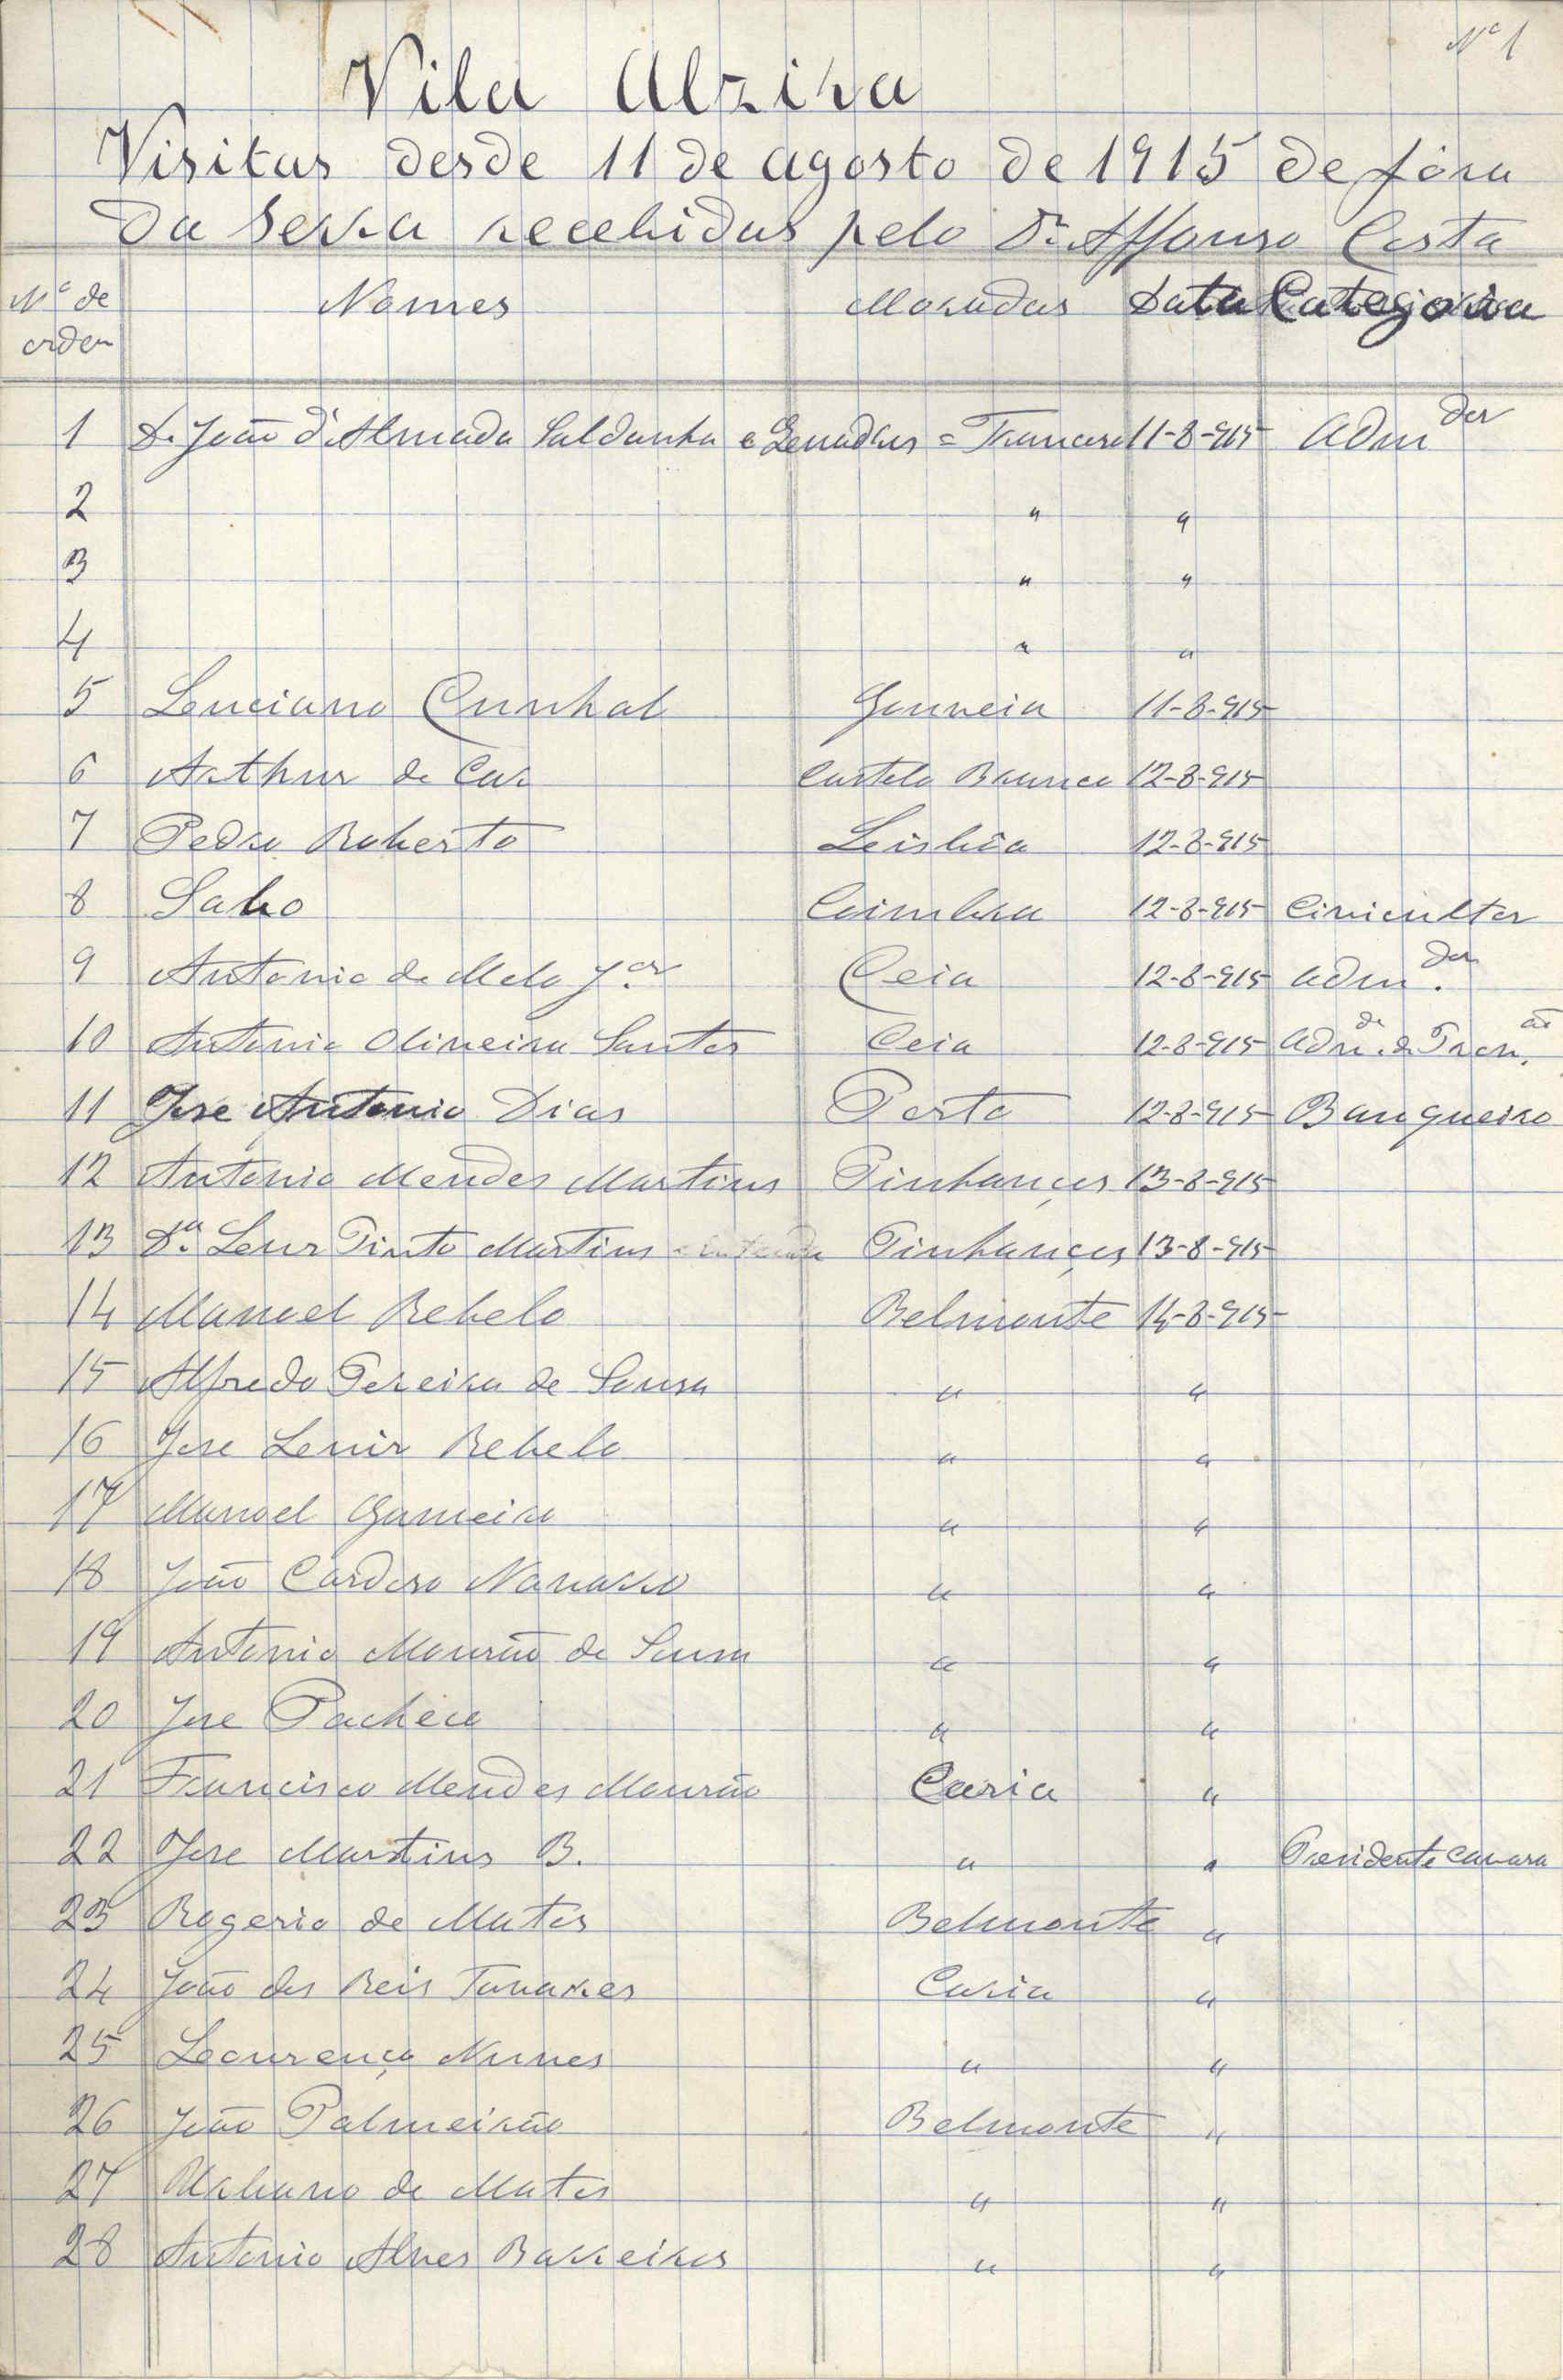 Nº 1
Vila Alzira
Visitas desde 11 de agosto de 1915 de fóra
da Serra recebidas pelo Dr. Affonso Costa
Nº de ordem Nomes Moradas Data Categoria
1 D. João d'Almada Saldanha e 11-8-915 Adm dor
2 " "
3 " "
4 " "
5 Luciano Cunhal Gouveia 11-8-915
6 Arthur de Castelo Branco 12-8-915
7 Pedro Roberto Lisbôa 12-8-915
8 Coimbra 12-8-915
9 Antonio de Melo Jor Ceia 12-8-915 Adm. dor
10 Antonio Oliveira Santos Ceia 12-8-915
11 Jose Antonio Dias Porto 12-8-915 Banqueiro
12 Antonio Mendes Martins Pinhanços 13-8-915
13 Da. Pinto Martins Pinhanços 13-8-915
14 Manoel Rebelo Belmonte 14-8-915
15 Alfredo Pereira de Sousa " "
16 Jose Rebelo " "
17 Manoel Gameiro " "
18 João Cardoso Navarro " "
19 Antonio Mourão de Sousa " "
20 Jose Pacheco " "
21 Francisco Mendes Mourão Caria "
22 Jose Martins B. " " Presidente Camara
23 Rogerio de Matos Belmonte "
24 João dos Reis Tavares Caria "
25 Lourenço Nunes " "
26 João Palmeirão Belmonte "
27 Urbano de Matos " "
28 Antonio Alves Barreiros " "